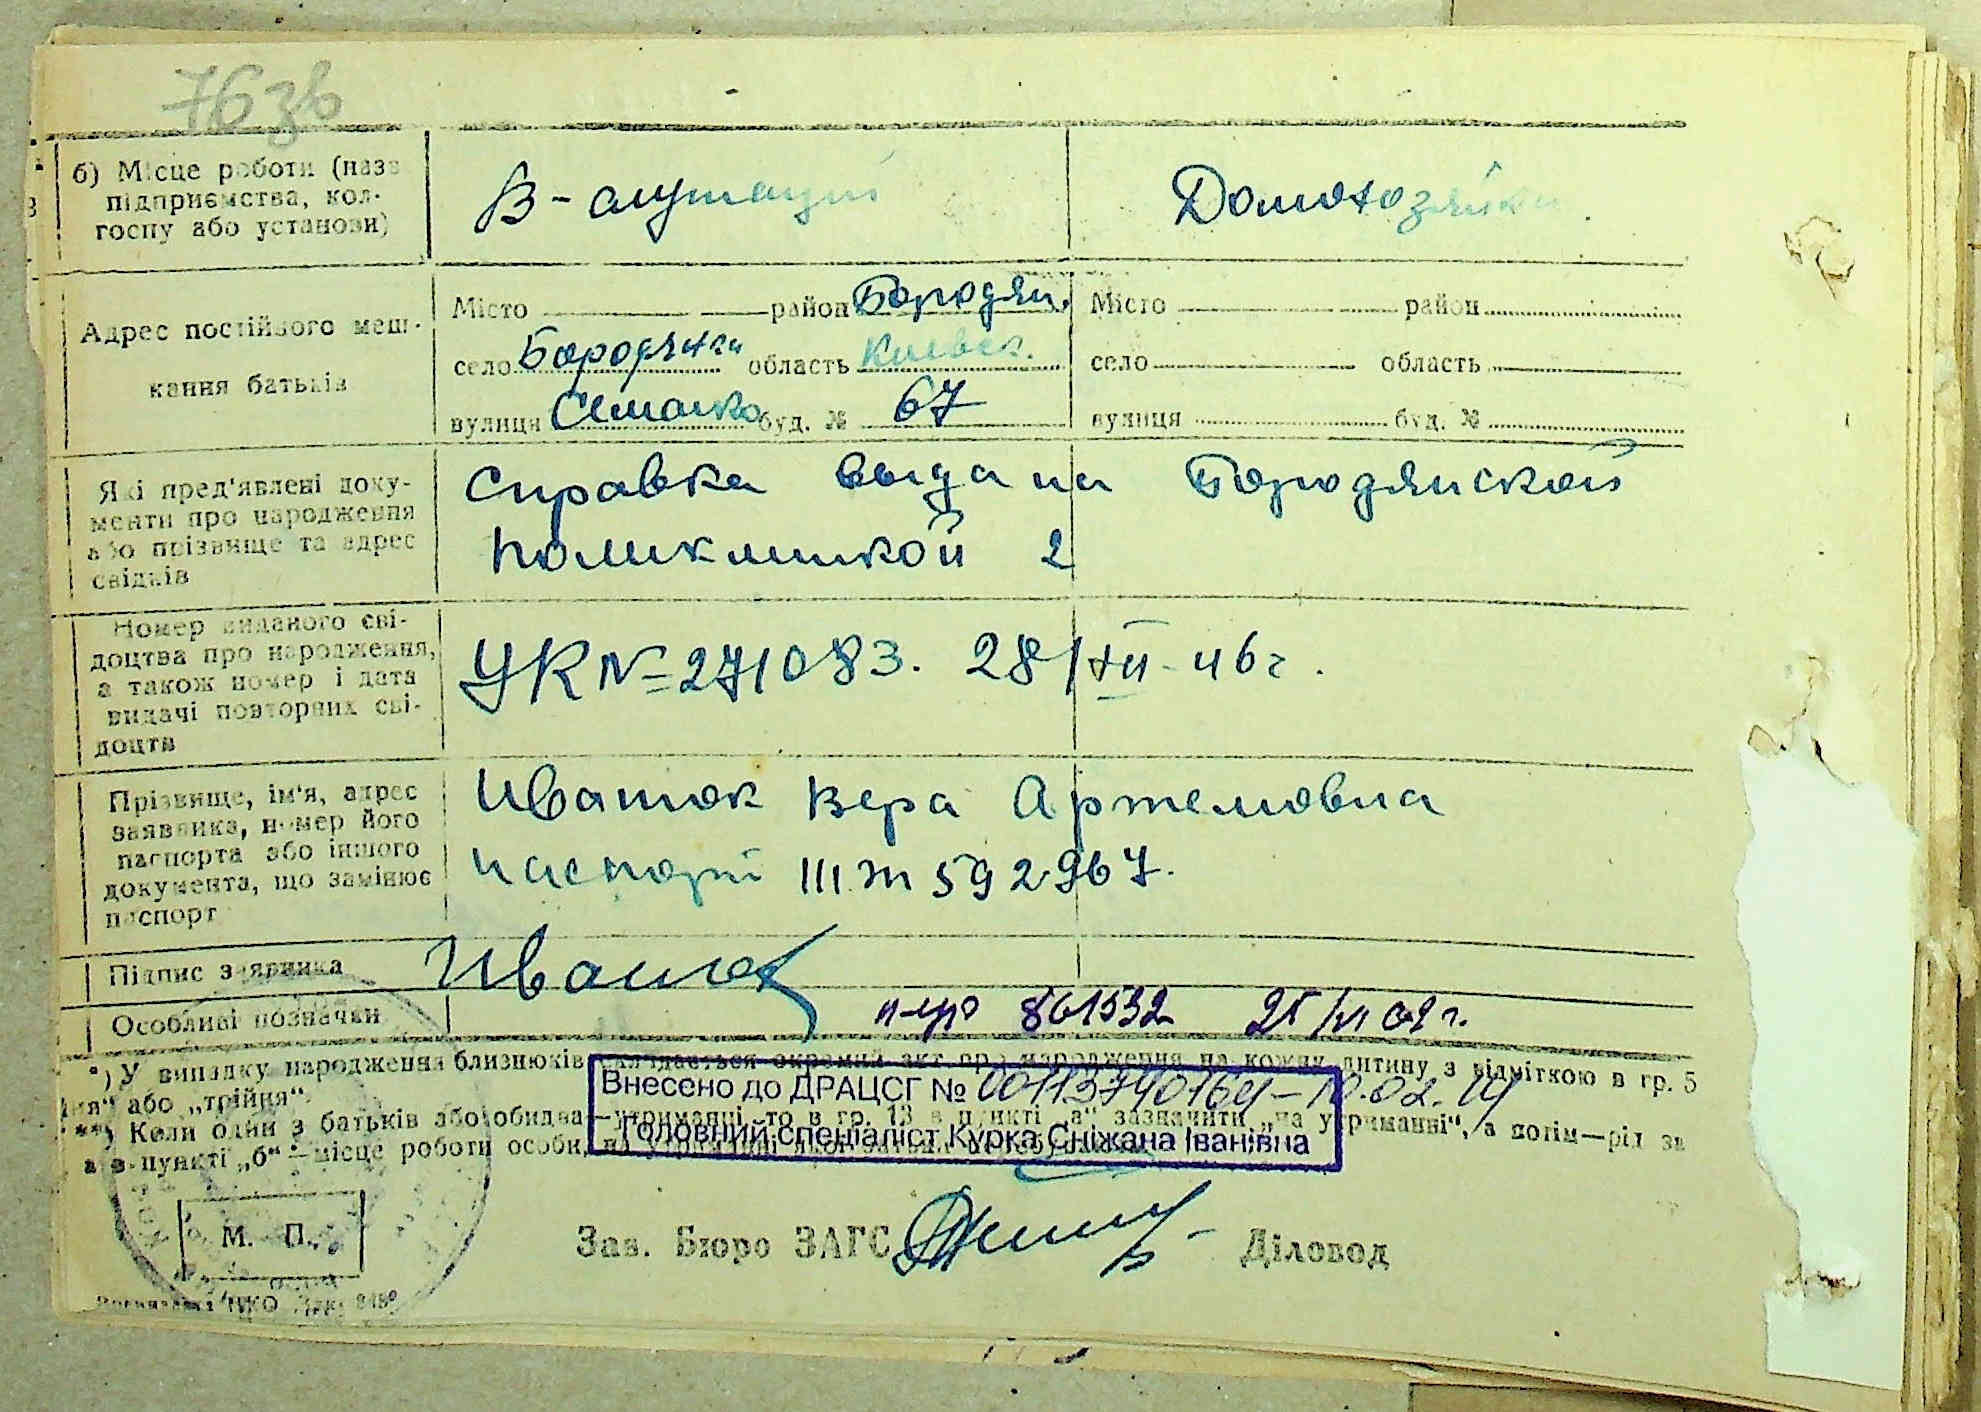 76 зв
б) Місце роботи (назв
підприємства, кол-
госпу або установи)
В-
Домохозяйка
Адрес постійного меш-
кання батьків
Місто район Бородян.
село Бородянка область Киевск.
вулиця буд. № 67
Місто район
село область
вулиця буд. №
Які пред'явлені доку-
менти про народження
або прізвище та адрес
свідків
Справка выдана Бородянской
поликликой 2
Номер виданого сві-
доцтва про народження,
а також номер і дата
видачі повторних сві-
доцтв
УК № 271083. 28/XII-46 г.
Прізвище, ім'я, адрес
заявника, номер його
паспорта або іншого
документа, що замінює
паспорт
Ивашок Вера Артемовна
паспорт III 592967.
Підпис заявника
Ивашок
Особливі позначки
861532 25/VI
*) У випадку народження близнюків складається окремий акт про народження на кожну дитину з відміткою в гр. 5
або „трійня".
**) Коли один з батьків або обидва—утриманні, то в гр. 13 в пункті „а" зазначити „на утриманні", а потім—рід за
а в пункті „б"—місце роботи особи, на утриманні
Внесено до ДРАЦСГ № 00113740164 – 10.02.
Головний спеціаліст Курка Сніжана Іванівна
М. П.
Зав. Бюро ЗАГС
Діловод